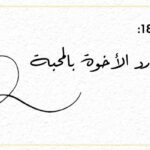 18:
رد الأخوة بالمحبة